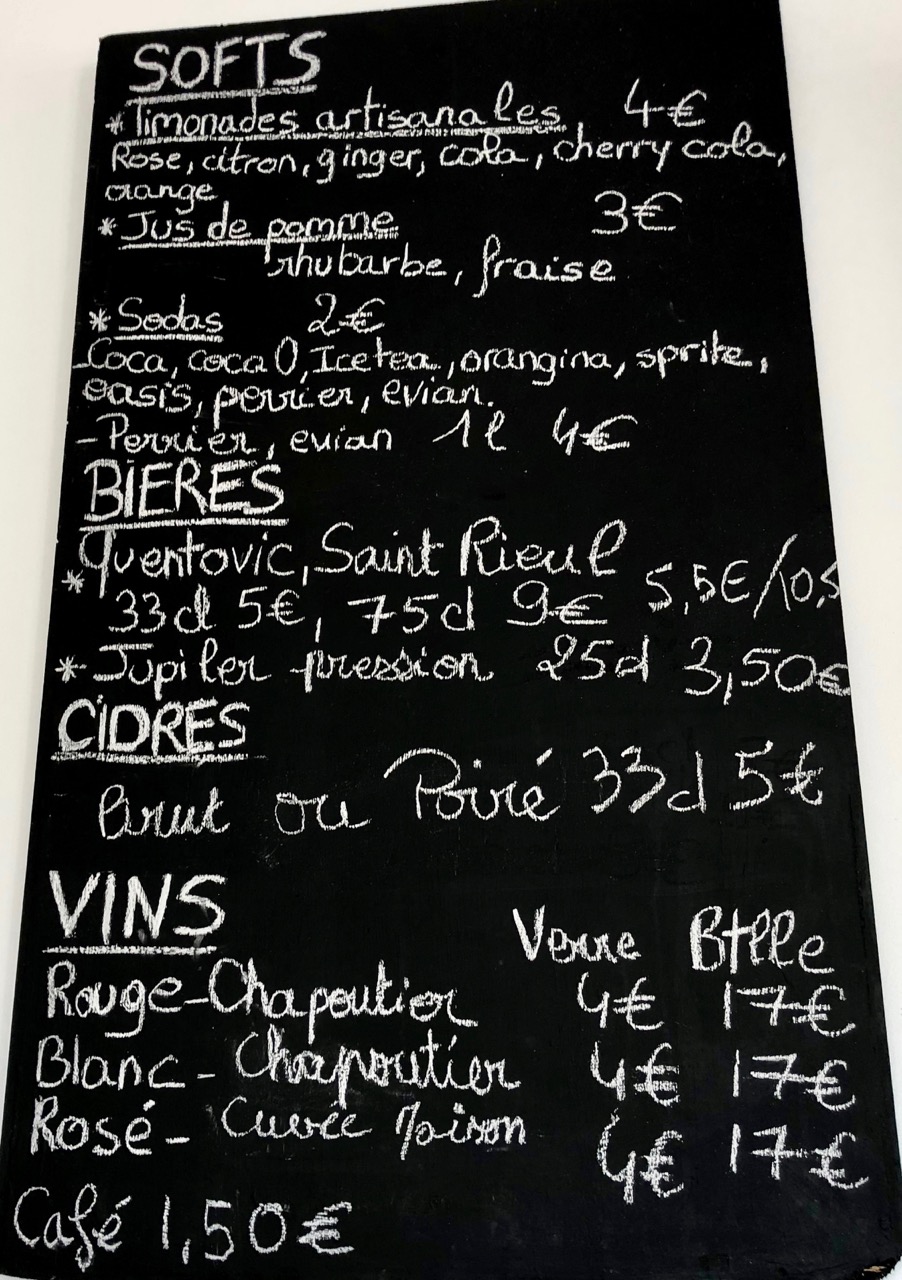 SOFTS
* Limonades artisanales 4€
Rose, citron, ginger, cola, cherry cola,
orange
* Jus de pomme 3€
rhubarbe, fraise
* Sodas 2€
Coca, coca 0, Icetea, orangina, sprite,
oasis, perrier, evian.
- Perrier, evian 1l 4€
BIERES
* Quentovic, Saint Rieul
33cl 5€, 75cl 9€ 5,5€/10,5
* Jupiler pression 25cl 3,50€
CIDRES
Brut ou Poiré 33cl 5€
VINS
Verre Btlle
Rouge - Chapoutier 4€ 17€
Blanc - Chapoutier 4€ 17€
Rosé - Cuvée Maison 4€ 17€
Café 1,50€